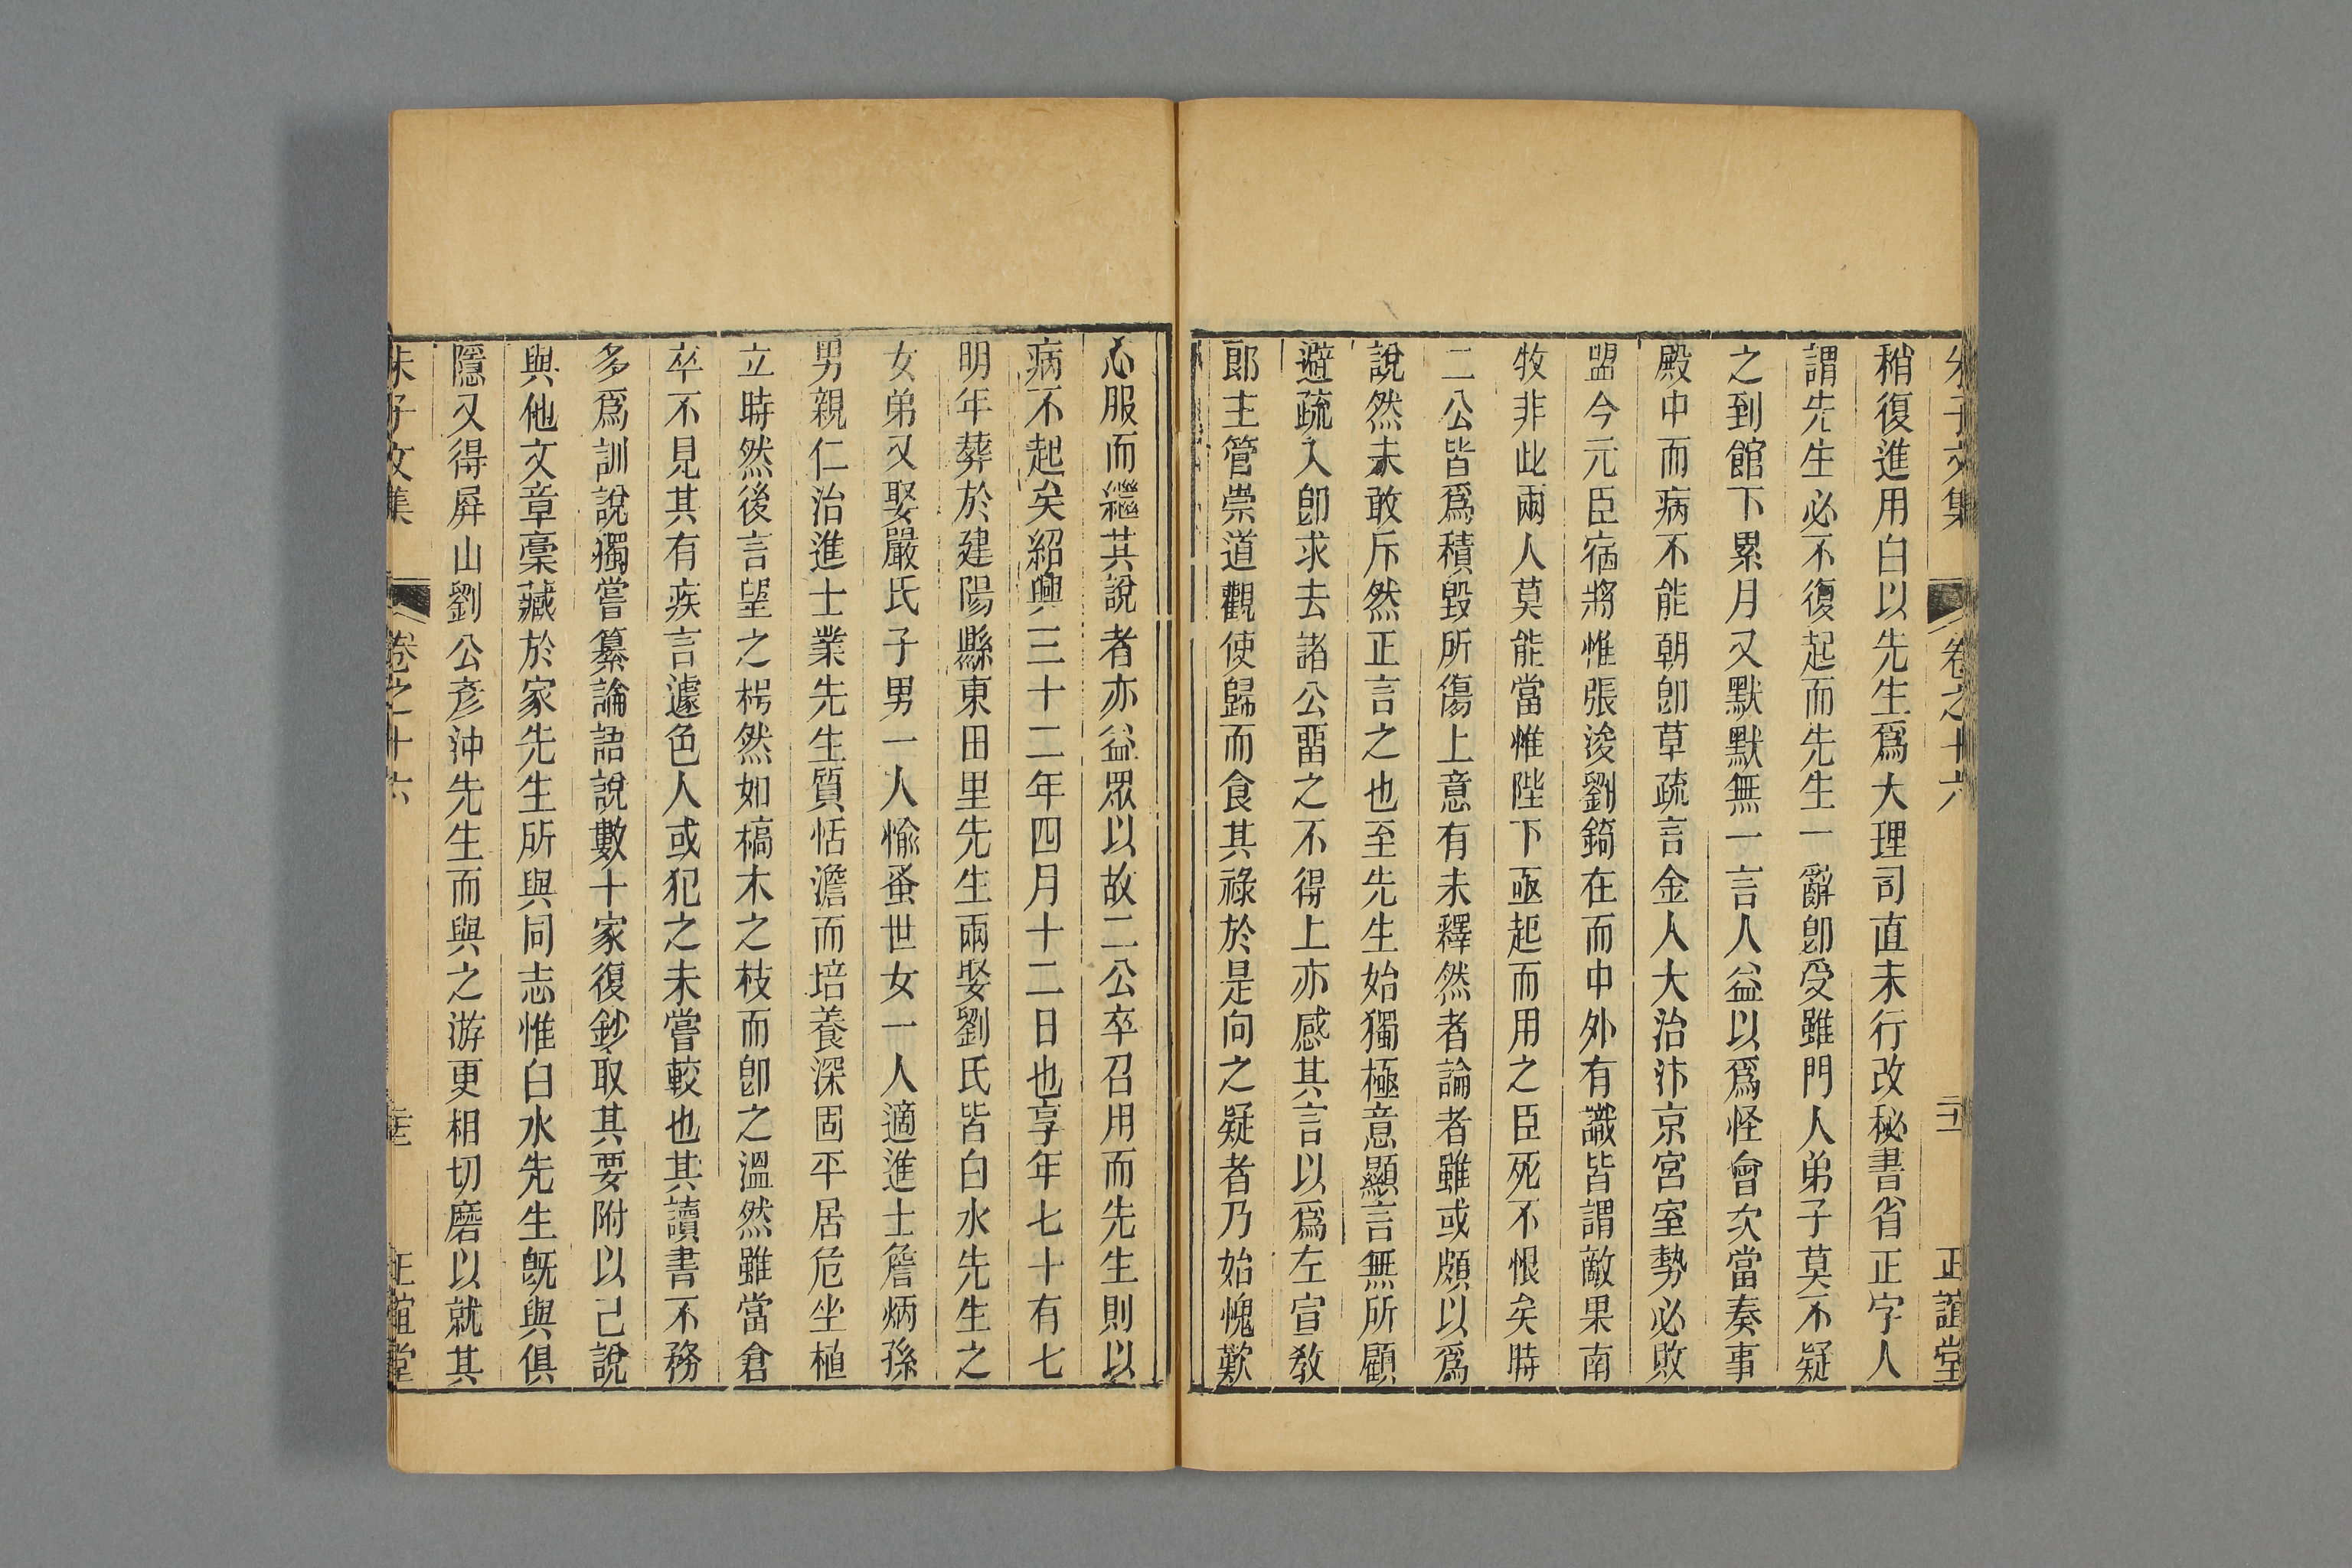 朱子文集 卷之十六 正誼堂
稍復進用白以先生爲大理司直未行改秘書省正字人
謂先生必不復起而先生一辭卽受雖門人弟子莫不疑
之到館下累月又默默無一言人益以爲怪會次當奏事
殿中而病不能朝卽草疏言金人大治汴京宮室勢必敗
盟今元臣宿將惟張浚劉錡在而中外有識皆謂敵果南
牧非此兩人莫能當惟陛下亟起而用之臣死不恨矣時
二公皆爲積毀所傷上意有未釋然者論者雖或頗以爲
說然未敢斥然正言之也至先生始獨極意顯言無所顧
避疏入卽求去諸公畱之不得上亦感其言以爲左宣教
郎主管崇道觀使歸而食其祿於是向之疑者乃始愧歎
心服而繼其說者亦益眾以故二公卒召用而先生則以
病不起矣紹興三十二年四月十二日也享年七十有七
明年葬於建陽縣東田里先生兩娶劉氏皆白水先生之
女弟又娶嚴氏子男一人愉蚤世女一人適進士詹炳孫
男親仁治進士業先生質恬澹而培養深固平居危坐植
立時然後言望之枵然如槁木之枝而卽之溫然雖當倉
卒不見其有疾言遽色人或犯之未嘗較也其讀書不務
多爲訓說獨嘗纂論語說數十家復鈔取其要附以己說
與他文章稾藏於家先生所與同志惟白水先生旣與俱
隱又得屛山劉公彥沖先生而與之游更相切磨以就其
朱子文集 卷之十六 正誼堂